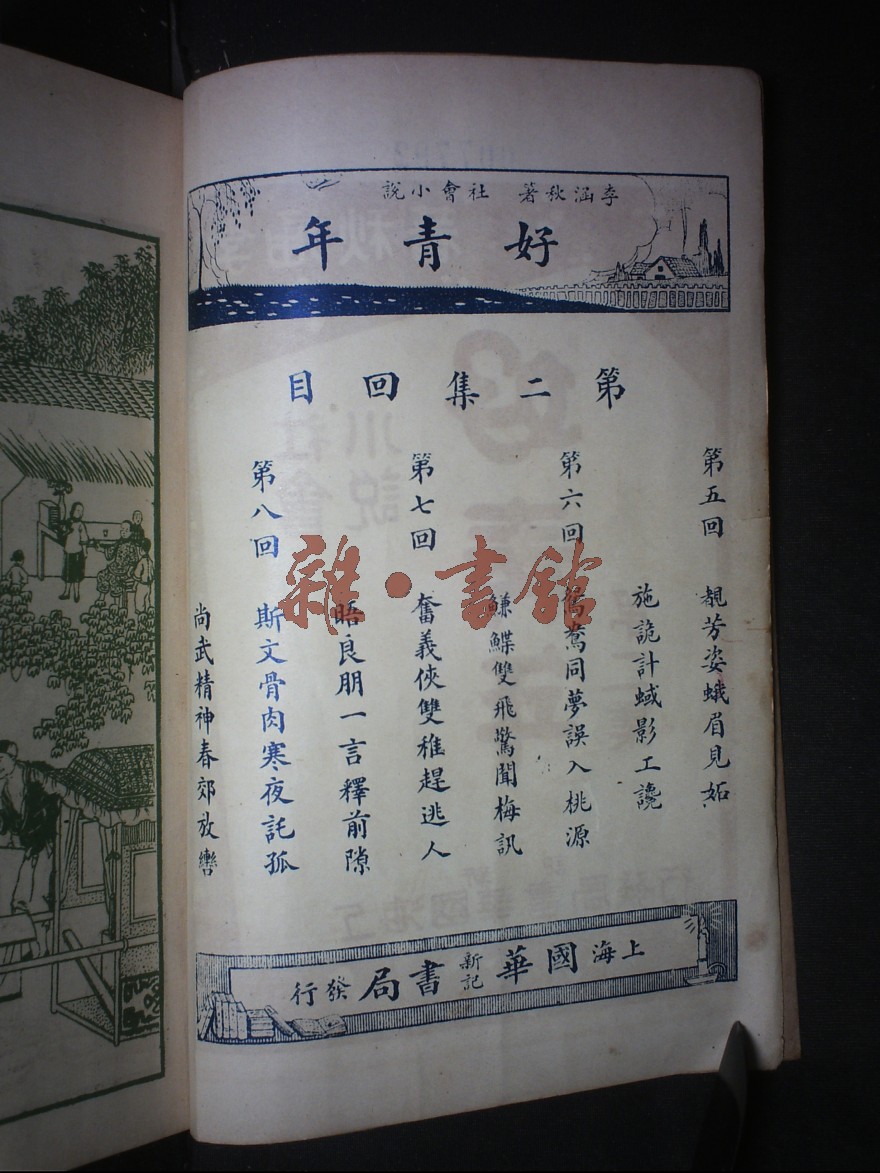 李涵秋著 社會小說
好青年
第二集回目
第五回 靚芳姿蛾眉見妬
施詭計蜮影工讒
第六回 鴛鴦同夢誤入桃源
鰜鰈雙飛驚聞梅訊
第七回 奮義俠雙稚趕逃人
晤良朋一言釋前隙
第八回 斯文骨肉寒夜託孤
尚武精神春郊放轡
上海國華新記書局發行
雜·書館